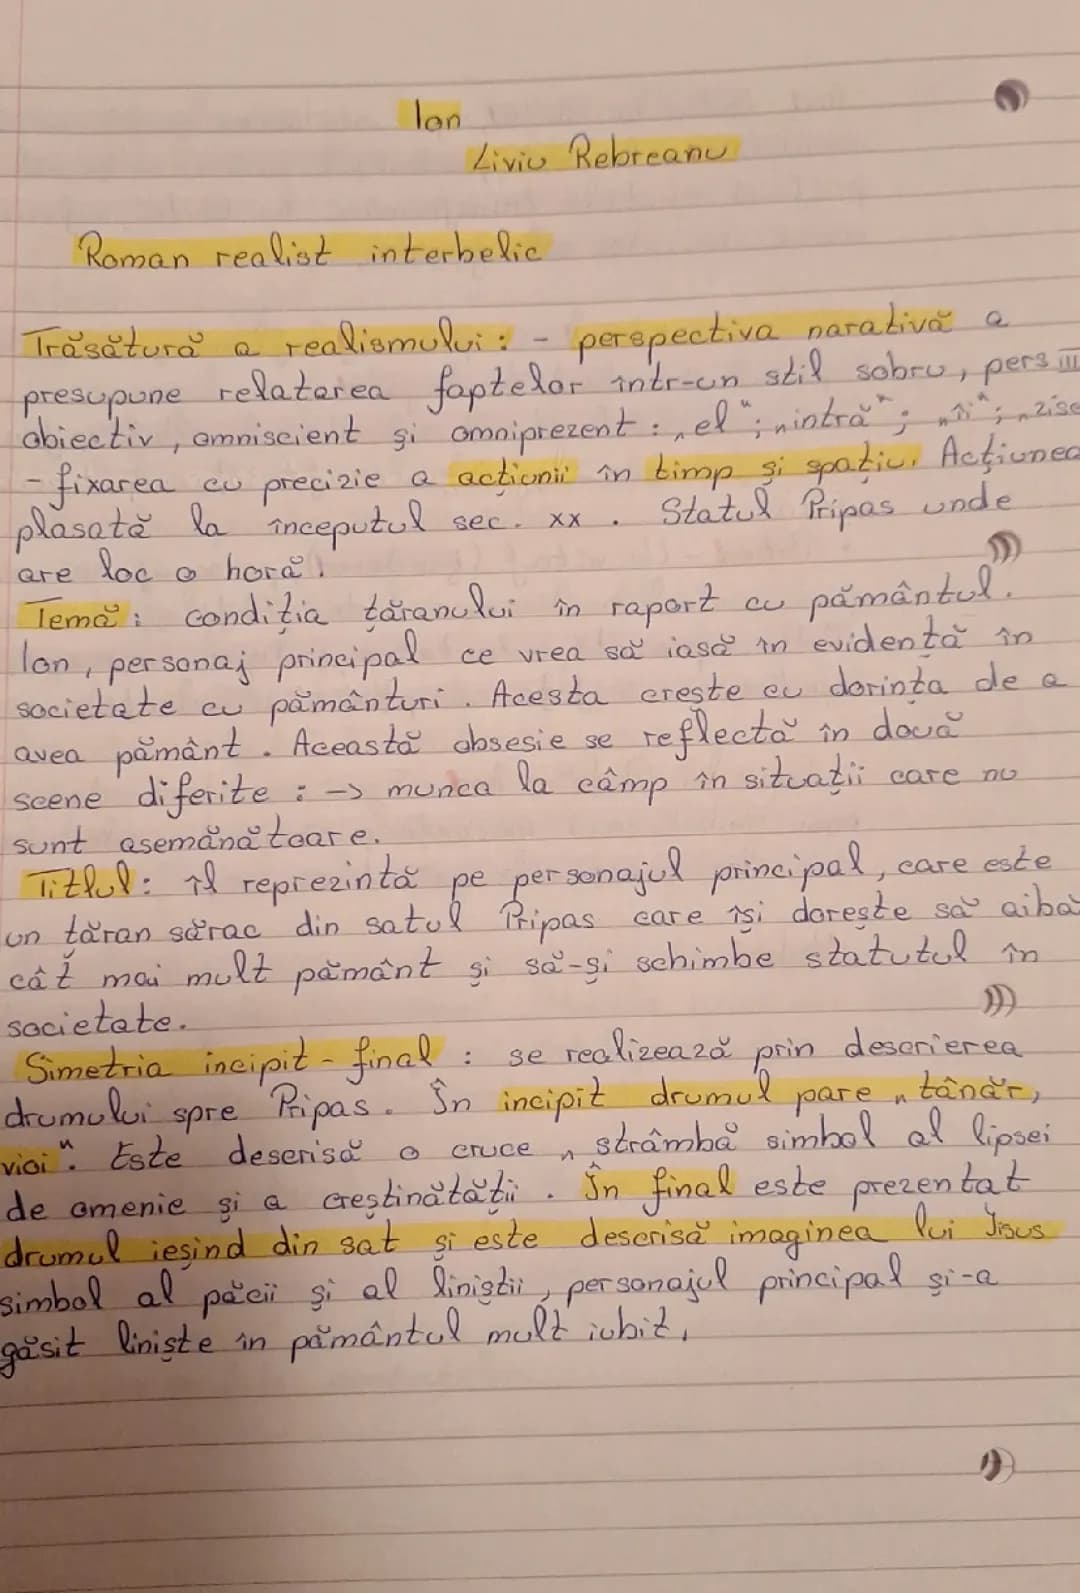 Ion
Liviu Rebreanu
Roman realist interbelic
Trăsătură a realismului: - perspectiva narativă a
presupune relatarea faptelor într-un stil sobru, pers III
obiectiv, omniscient și omniprezent: „el"; „intră"; „îi"; „zise
- fixarea cu precizie a acțiunii în timp și spațiu. Acțiunea
plasată la începutul sec. xx. Statul Pripas unde
are loc o horă.
Temă: condiția țăranului în raport cu pământul.
Ion, personaj principal ce vrea să iasă în evidență în
societate cu pământuri. Acesta crește cu dorința de a
avea pământ. Această obsesie se reflectă în două
scene diferite: -> munca la câmp în situații care nu
sunt asemănătoare.
Titlul: îl reprezintă pe personajul principal, care este
un țăran sărac din satul Pripas care își dorește să aibă
cât mai mult pământ și să-și schimbe statutul în
societate.
Simetria incipit - final: se realizează prin descrierea
drumului spre Pripas. În incipit drumul pare „tânăr,
vioi". Este descrisă o cruce „strâmbă simbol al lipsei
de omenie și a creștinătății. În final este prezentat
drumul ieșind din sat și este descrisă imaginea lui Iisus
simbol al păcii și al liniștii, personajul principal și-a
găsit liniște în pământul mult iubit.